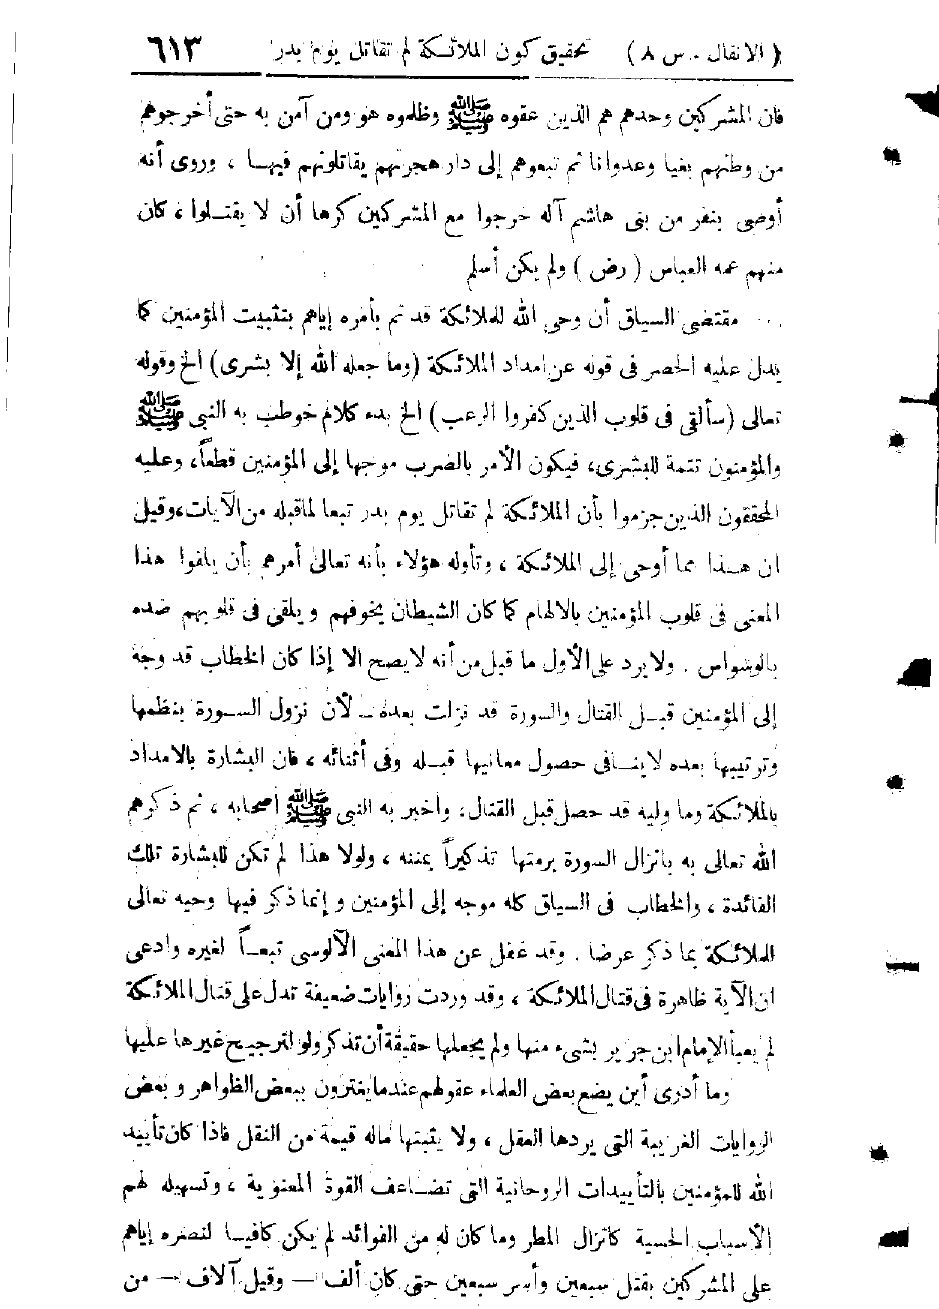 (الانفال . س ٨) تحقيق كون الملائكة لم تقاتل يوم بدر ٦١٣
فان المشركين وحدهم هم الذين عقوه ﷺ وظلموه هو ومن آمن به حتى أخرجوهم
من وطنهم بغيا وعدوانا ثم تبعوهم إلى دار هجرتهم يقاتلونهم فيهـا ، وروى أنه
أوصى بنفر من بنى هاشم آله خرجوا مع المشركين كرها أن لا يقتـلوا ، كان
منهم عمه العباس ( رض ) ولم يكن أسلم
... مقتضى السياق أن وحى الله للملائكة قد تم بأمره إياهم بتثبيت المؤمنين كما
يدل عليه الحصر فى قوله عن امداد الملائكة (وما جعله الله إلا بشرى) الخ وقوله
تعالى (سألقى فى قلوب الذين كفروا الرعب) الخ بدء كلام خوطب به النبى ﷺ
والمؤمنون تتمة للبشرى، فيكون الأمر بالضرب موجها إلى المؤمنين قطعاً، وعليه
المحققون الذين جزموا بأن الملائكة لم تقاتل يوم بدر تبعا لما قبله من الآيات، وقيل
ان هـذا مما أوحى إلى الملائكة ، وتأوله هؤلاء بأنه تعالى أمرهم بأن يلقوا هذا
المعنى فى قلوب المؤمنين بالالهام كما كان الشيطان يخوفهم ويلقى فى قلوبهم ضده
بالوسواس . ولا يرد على الأول ما قيل من أنه لا يصح الا إذا كان الخطاب قد وجه
إلى المؤمنين قبـل القتال والسورة قد نزلت بعده ــ لأن نزول السـورة بنظمها
وترتيبها بعده لا ينـافى حصول معانيها قبـله وفى أثنائه ، فان البشارة بالامداد
بالملائكة وما وليه قد حصل قبل القتال، وأخبر به النبى ﷺ أصحابه ، ثم ذكرهم
الله تعالى به بانزال السورة برمتها تذكيراً بمننه ، ولولا هذا لم تكن للبشارة تلك
الفائدة ، والخطاب فى السياق كله موجه إلى المؤمنين وإنما ذكر فيها وحيه تعالى
للملائكة بما ذكر عرضا . وقد غفل عن هذا المعنى الآلوسى تبعـاً لغيره وادعى
ان الآية ظاهرة فى قتال الملائكة ، وقد وردت روايات ضعيفة تدل على قتال الملائكة
لم يعبأ الإمام ابن جرير بشىء منها ولم يجعلها حقيقة أن تذكر ولو لترجيح غيرها عليها
وما أدرى أين يضع بعض العلماء عقولهم عندما يغترون ببعض الظواهر وبعض
الروايات الغريبة التى يردها العقل ، ولا يثبتها ماله قيمة من النقل فاذا كان تأييد
الله للمؤمنين بالتأييدات الروحانية التى تضـاعف القوة المعنوية ، وتسهيله لهم
الأسباب الحسية كانزال المطر وما كان له من الفوائد لم يكن كافيـا لنصره إياهم
على المشركين بقتل سبعين وأسر سبعين حتى كان ألف ــ وقيل آلاف ــ من